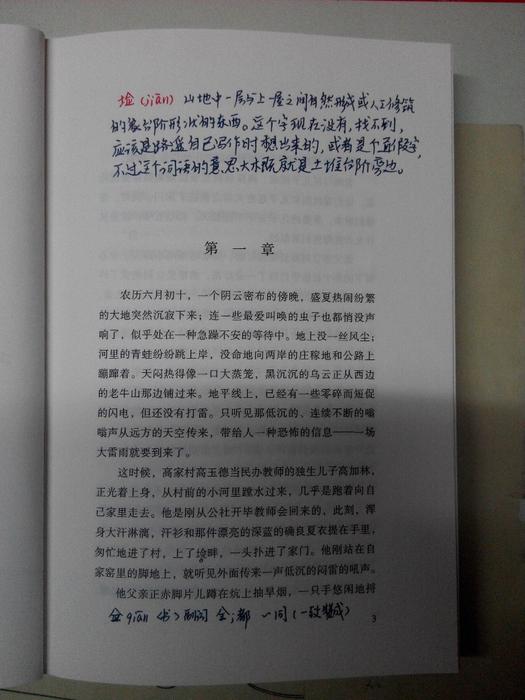 硷(jiǎn) 山地中一层与上一层之间自然形成或人工修筑
的象台阶形状的东西。这个字现在没有,找不到,
应该是路遥自己写作时想出来的,或者是个通假字,
不过这个词语的意思大概就是土堆台阶旁边。
第一章
农历六月初十,一个阴云密布的傍晚,盛夏热闹纷繁
的大地突然沉寂下来;连一些最爱叫唤的虫子也都悄没声
响了,似乎处在一种急躁不安的等待中。地上没一丝风尘;
河里的青蛙纷纷跳上岸,没命地向两岸的庄稼地和公路上
蹦蹿着。天闷热得像一口大蒸笼,黑沉沉的乌云正从西边
的老牛山那边铺过来。地平线上,已经有一些零碎而短促
的闪电,但还没有打雷。只听见那低沉的、连续不断的嗡
嗡声从远方的天空传来,带给人一种恐怖的信息———一场
大雷雨就要到来了。
这时候,高家村高玉德当民办教师的独生儿子高加林,
正光着上身,从村前的小河里蹚水过来,几乎是跑着向自
己家里走去。他是刚从公社开毕教师会回来的,此刻,浑
身大汗淋漓,汗衫和那件漂亮的深蓝的确良夏衣提在手里,
匆忙地进了村,上了硷畔,一头扑进了家门。他刚站在自
家窑里的脚地上,就听见外面传来一声低沉的闷雷的吼声。
他父亲正赤脚片儿蹲在炕上抽旱烟,一只手悠闲地捋
佥 qiān 〈书〉副词 全;都 ~同(一致赞成)
3